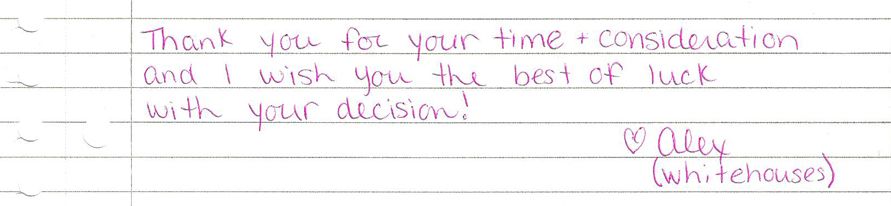 Thank you for your time + consideration
and I wish you the best of luck
with your decision!
♡ Alex
(whitehouses)